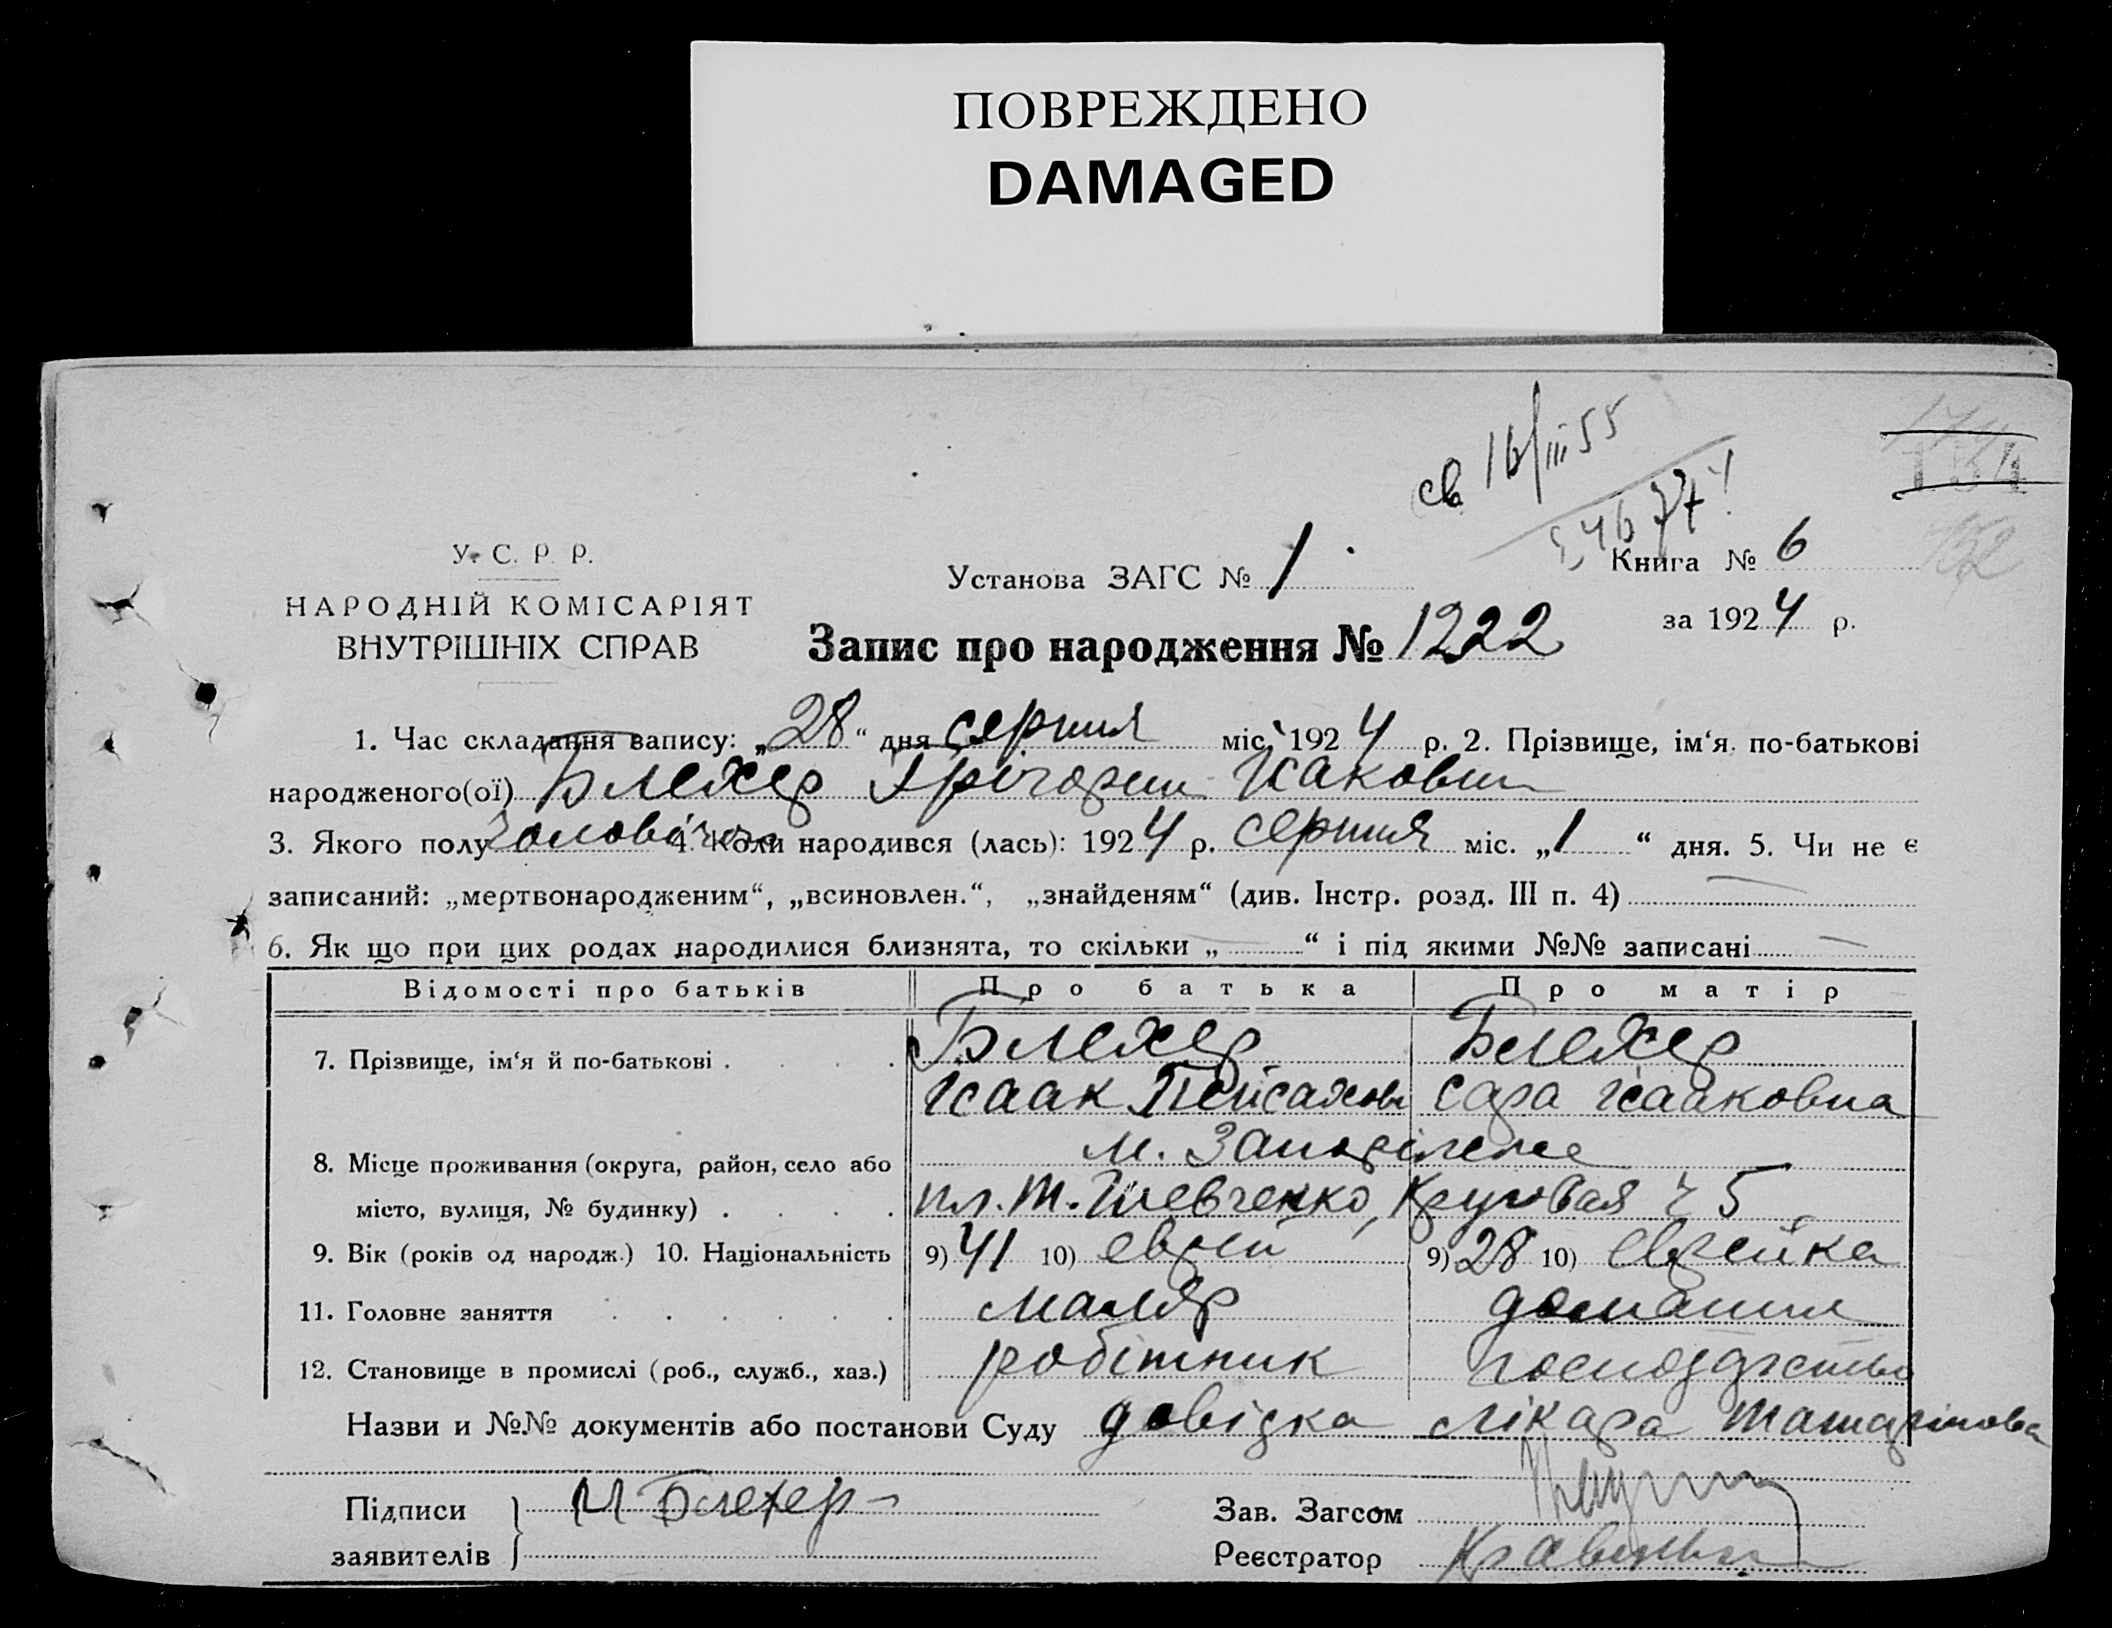 ПОВРЕЖДЕНО
DAMAGED
св 16/III 55
134
У. С. Р. Р.
НАРОДНІЙ КОМІСАРІЯТ
ВНУТРІШНІХ СПРАВ
Установа ЗАГС № 1.
Книга № 6
за 1924 р.
Запис про народження № 1222
1. Час складання запису: „28“ дня серпня міс. 1924 р. 2. Прізвище, ім‘я по-батькові
народженого(ої) Блехер Грігорий Исакович
3. Якого полу чоловічого 4. Коли народився (лась): 1924 р. серпня міс. „1“ дня. 5. Чи не є
записаний: „мертвонародженим“, „всиновлен.“, „знайденям“ (див. Інстр. розд. III п. 4) —
6. Як що при цих родах народилися близнята, то скільки „—“ і під якими №№ записані —
Відомості про батьків Про батька Про матір
7. Прізвище, ім‘я й по-батькові . . . . Блехер Блехер
Исаак Пейсахов Сара Исааковна
8. Місце проживання (округа, район, село або м. Запоріжже
місто, вулиця, № будинку) . . . . пл. Т. Шевченко, Круговая ч 5
9. Вік (років од народж.) 10. Національність 9) 41 10) еврей 9) 28 10) еврейка
11. Головне заняття . . . . . . маляр домашнє
12. Становище в промислі (роб., служб., хаз.) робітник господарство
Назви и №№ документів або постанови Суду довідка лікара
Підписи заявителів } И Блехер
Зав. Загсом
Реєстратор